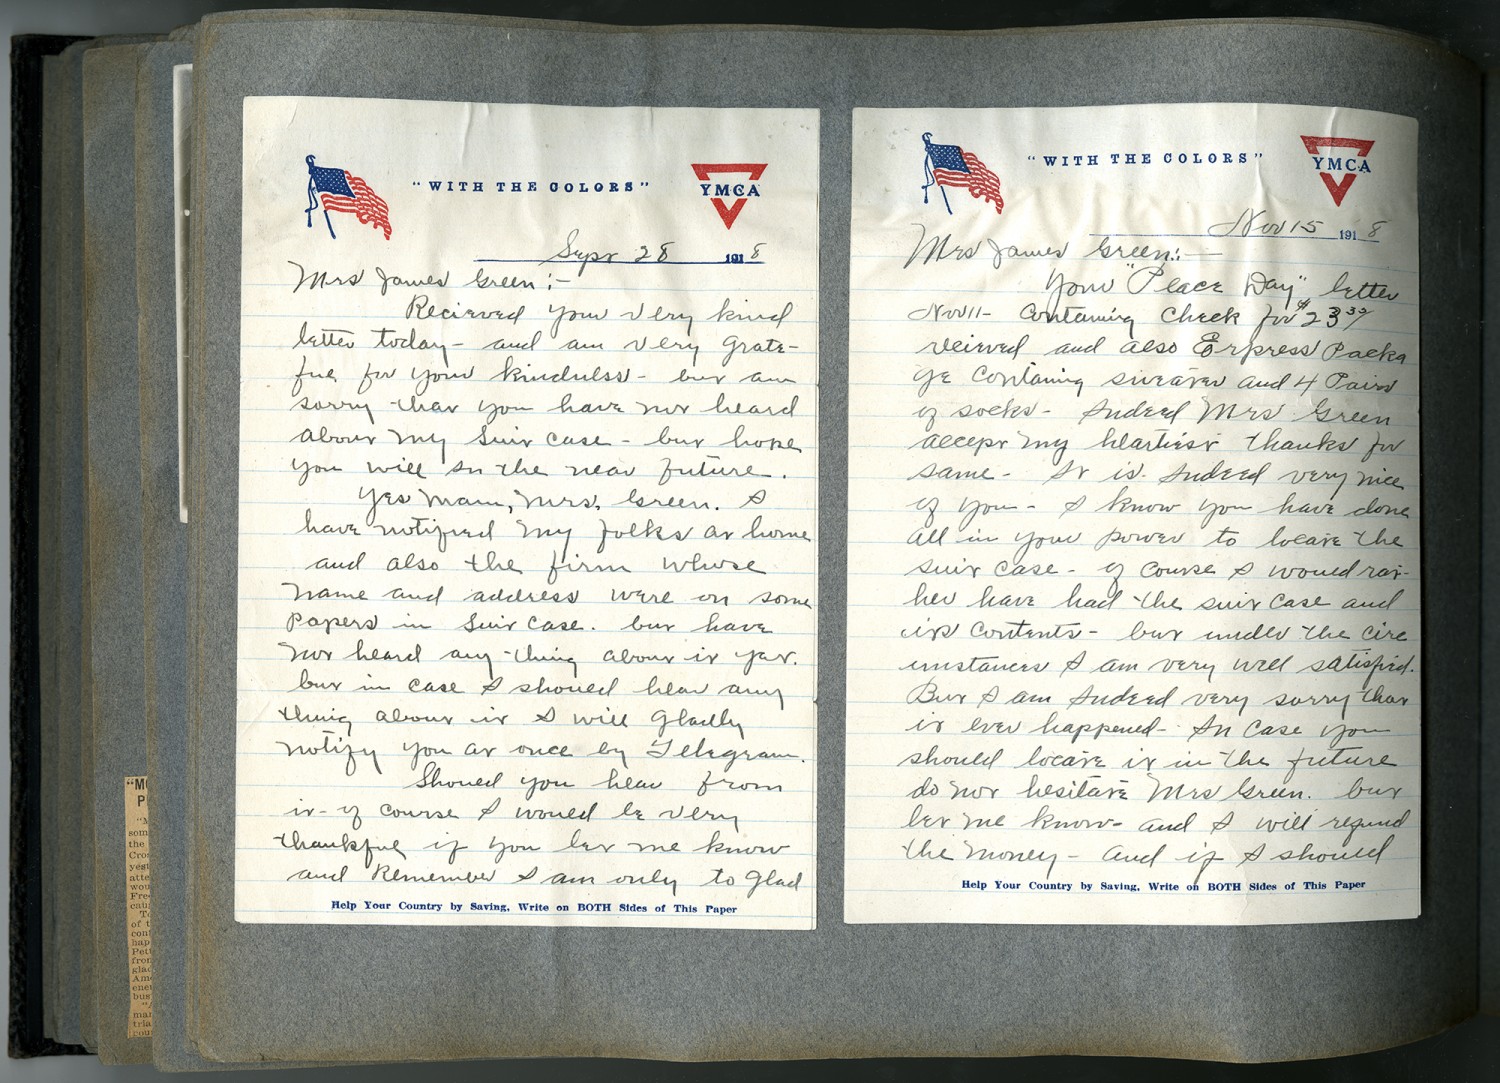 "WITH THE COLORS"
YMCA
Sept 28 1918
Mrs James Green:-
Recieved your very kind
letter today - and am very grate-
ful for your kindness - but am
sorry that you have not heard
about my suit case - but hope
you will in the near future.
Yes Mam, Mrs. Green. I
have notified my folks at home
and also the firm whose
name and address were on some
papers in suit case. but have
not heard any-thing about it yet.
but in case I should hear any
thing about it I will gladly
notify you at once by Telegram.
Should you hear from
it - of course I would be very
thankful if you let me know
and Remember I am only to glad
Help Your Country by Saving, Write on BOTH Sides of This Paper
"WITH THE COLORS"
YMCA
Nov 15 1918
Mrs James Green:-
Your "Peace Day" letter
Nov 11- Containing Check for $23
reieved and also Express Packa
ge containg sweater and 4 Pairs
of socks - Indeed Mrs Green
accept my heartiest thanks for
same - It is Indeed very nice
of you - I know you have done
all in your power to locate the
suit case - of course I would rat-
her have had the suit case and
its contents - but under the circ
umstances I am very well satisfied.
But I am Indeed very sorry that
it ever happened - In case you
should locate it in the future
do not hesitate Mrs Green. but
let me know - and I will refund
the money - and if I should
Help Your Country by Saving, Write on BOTH Sides of This Paper
"MO
P
"M
som
the
Cros
yest
atte
wou
Fre
cau
To
of t
con
hap
Pett
fron
glad
Ame
ene
bus
"A
mar
tria
cour